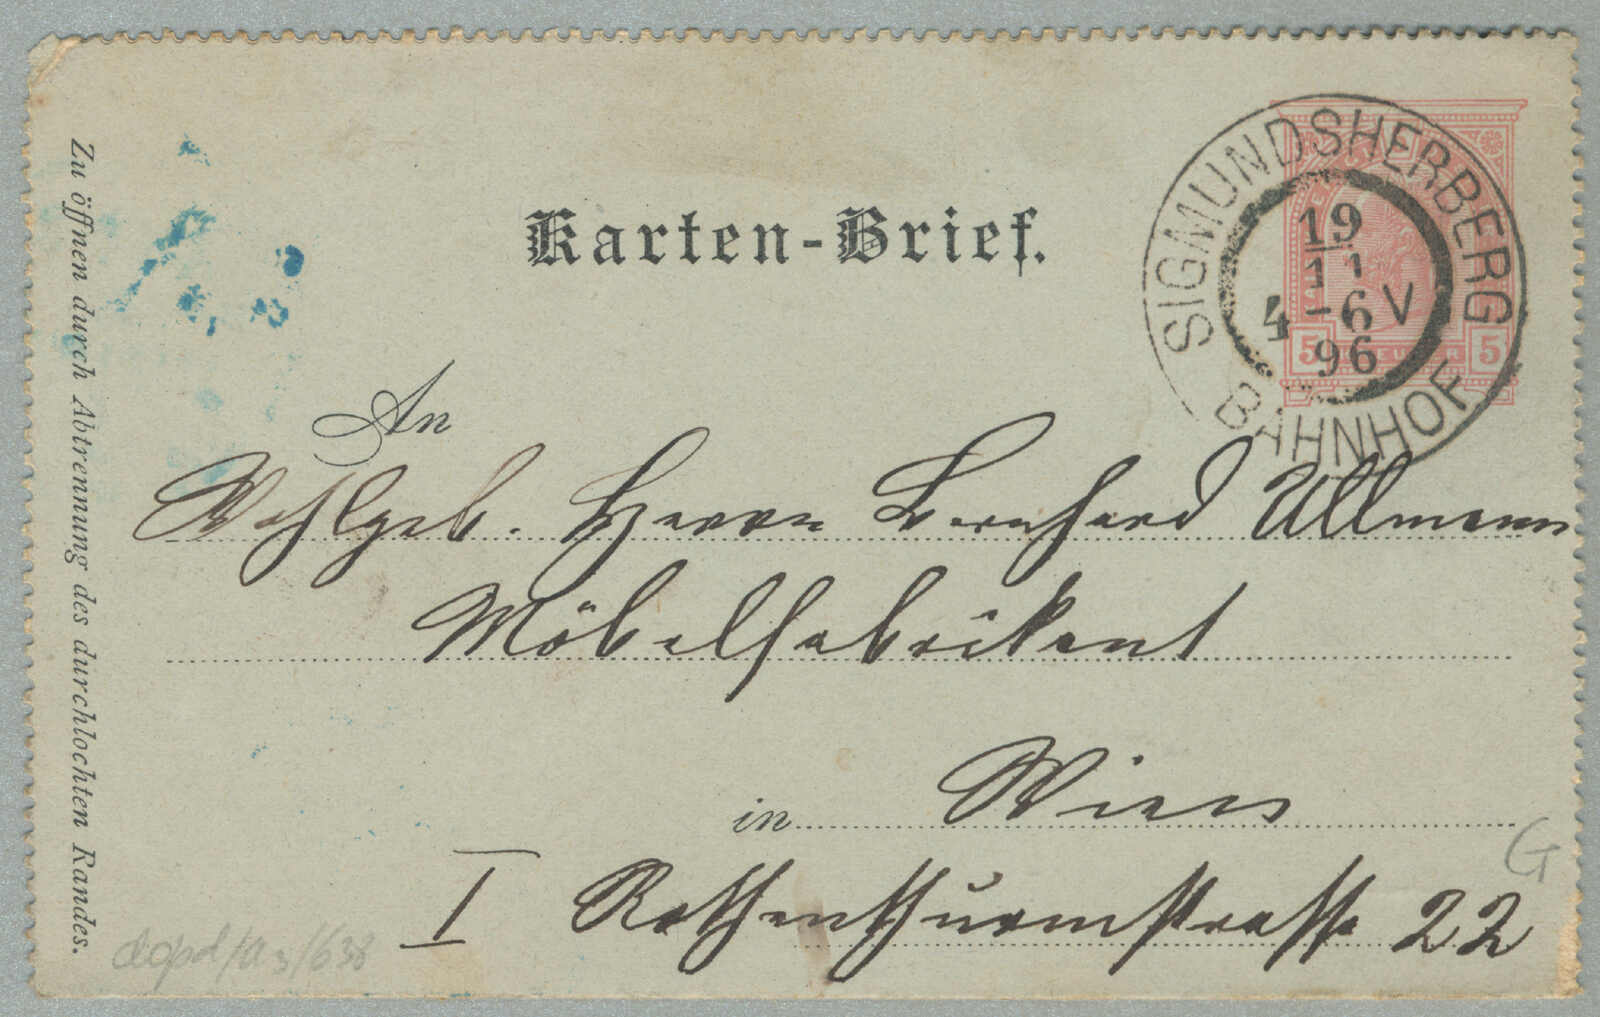 Karten-Brief.
SIGMUNDSHERBERG
BAHNHOF
19
11
4-6 V
96
5 5
An
Wohlgeb. Herrn Bernhard Ullmann
Möbelfabrikant
in Wien
I Rothenthurmstrasse 22
G
Zu öffnen durch Abtrennung des durchlochten Randes.